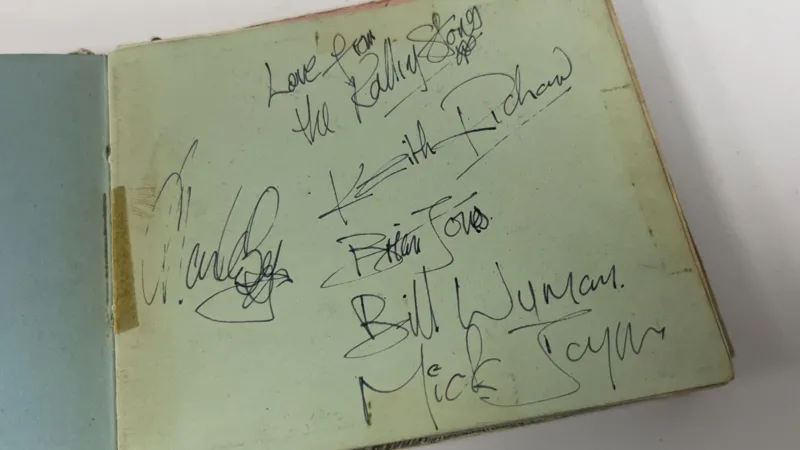 Love from
the Rolling Stones
xxx.
Keith Richard
Brian Jones.
Bill Wyman.
Mick Jagger